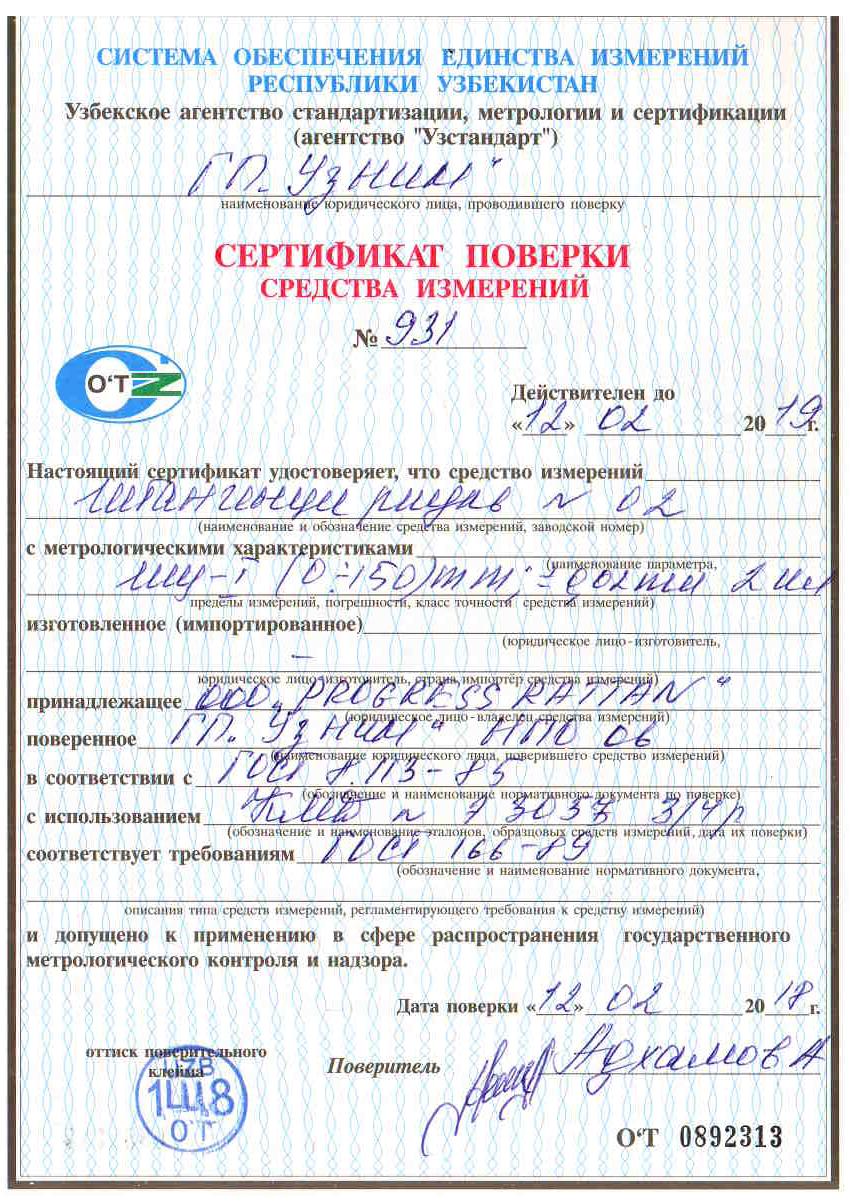 СИСТЕМА ОБЕСПЕЧЕНИЯ ЕДИНСТВА ИЗМЕРЕНИЙ
РЕСПУБЛИКИ УЗБЕКИСТАН
Узбекское агентство стандартизации, метрологии и сертификации
(агентство "Узстандарт")
ГП. „УзНИИМ"
наименование юридического лица, проводившего поверку
СЕРТИФИКАТ ПОВЕРКИ
СРЕДСТВА ИЗМЕРЕНИЙ
№ 931
O'T
Действителен до
«12» 02 2019г.
Настоящий сертификат удостоверяет, что средство измерений
№ 02
(наименование и обозначение средства измерений, заводской номер)
с метрологическими характеристиками
(наименование параметра,
ШЦ-I (0÷150)mm; 2 шт
пределы измерений, погрешности, класс точности средства измерений)
изготовленное (импортированное)
(юридическое лицо-изготовитель,
–
юридическое лицо-изготовитель, страна, импортёр средства измерений)
принадлежащее ООО „PROGRESS RATTAN"
(юридическое лицо-владелец средства измерений)
поверенное ГП. „УзНИИМ" НПО 06
(наименование юридического лица, поверившего средство измерений)
в соответствии с ГОСТ 8.113-85
(обозначение и наименование нормативного документа по поверке)
с использованием КМД № 73037 3/4р
(обозначение и наименование эталонов, образцовых средств измерений, дата их поверки)
соответствует требованиям ГОСТ 166-89
(обозначение и наименование нормативного документа,
описания типа средств измерений, регламентирующего требования к средству измерений)
и допущено к применению в сфере распространения государственного
метрологического контроля и надзора.
Дата поверки «12» 02 2018 г.
оттиск поверительного
клейма
UZB
1Щ8
O'T
Поверитель Адхамов А
O'T 0892313